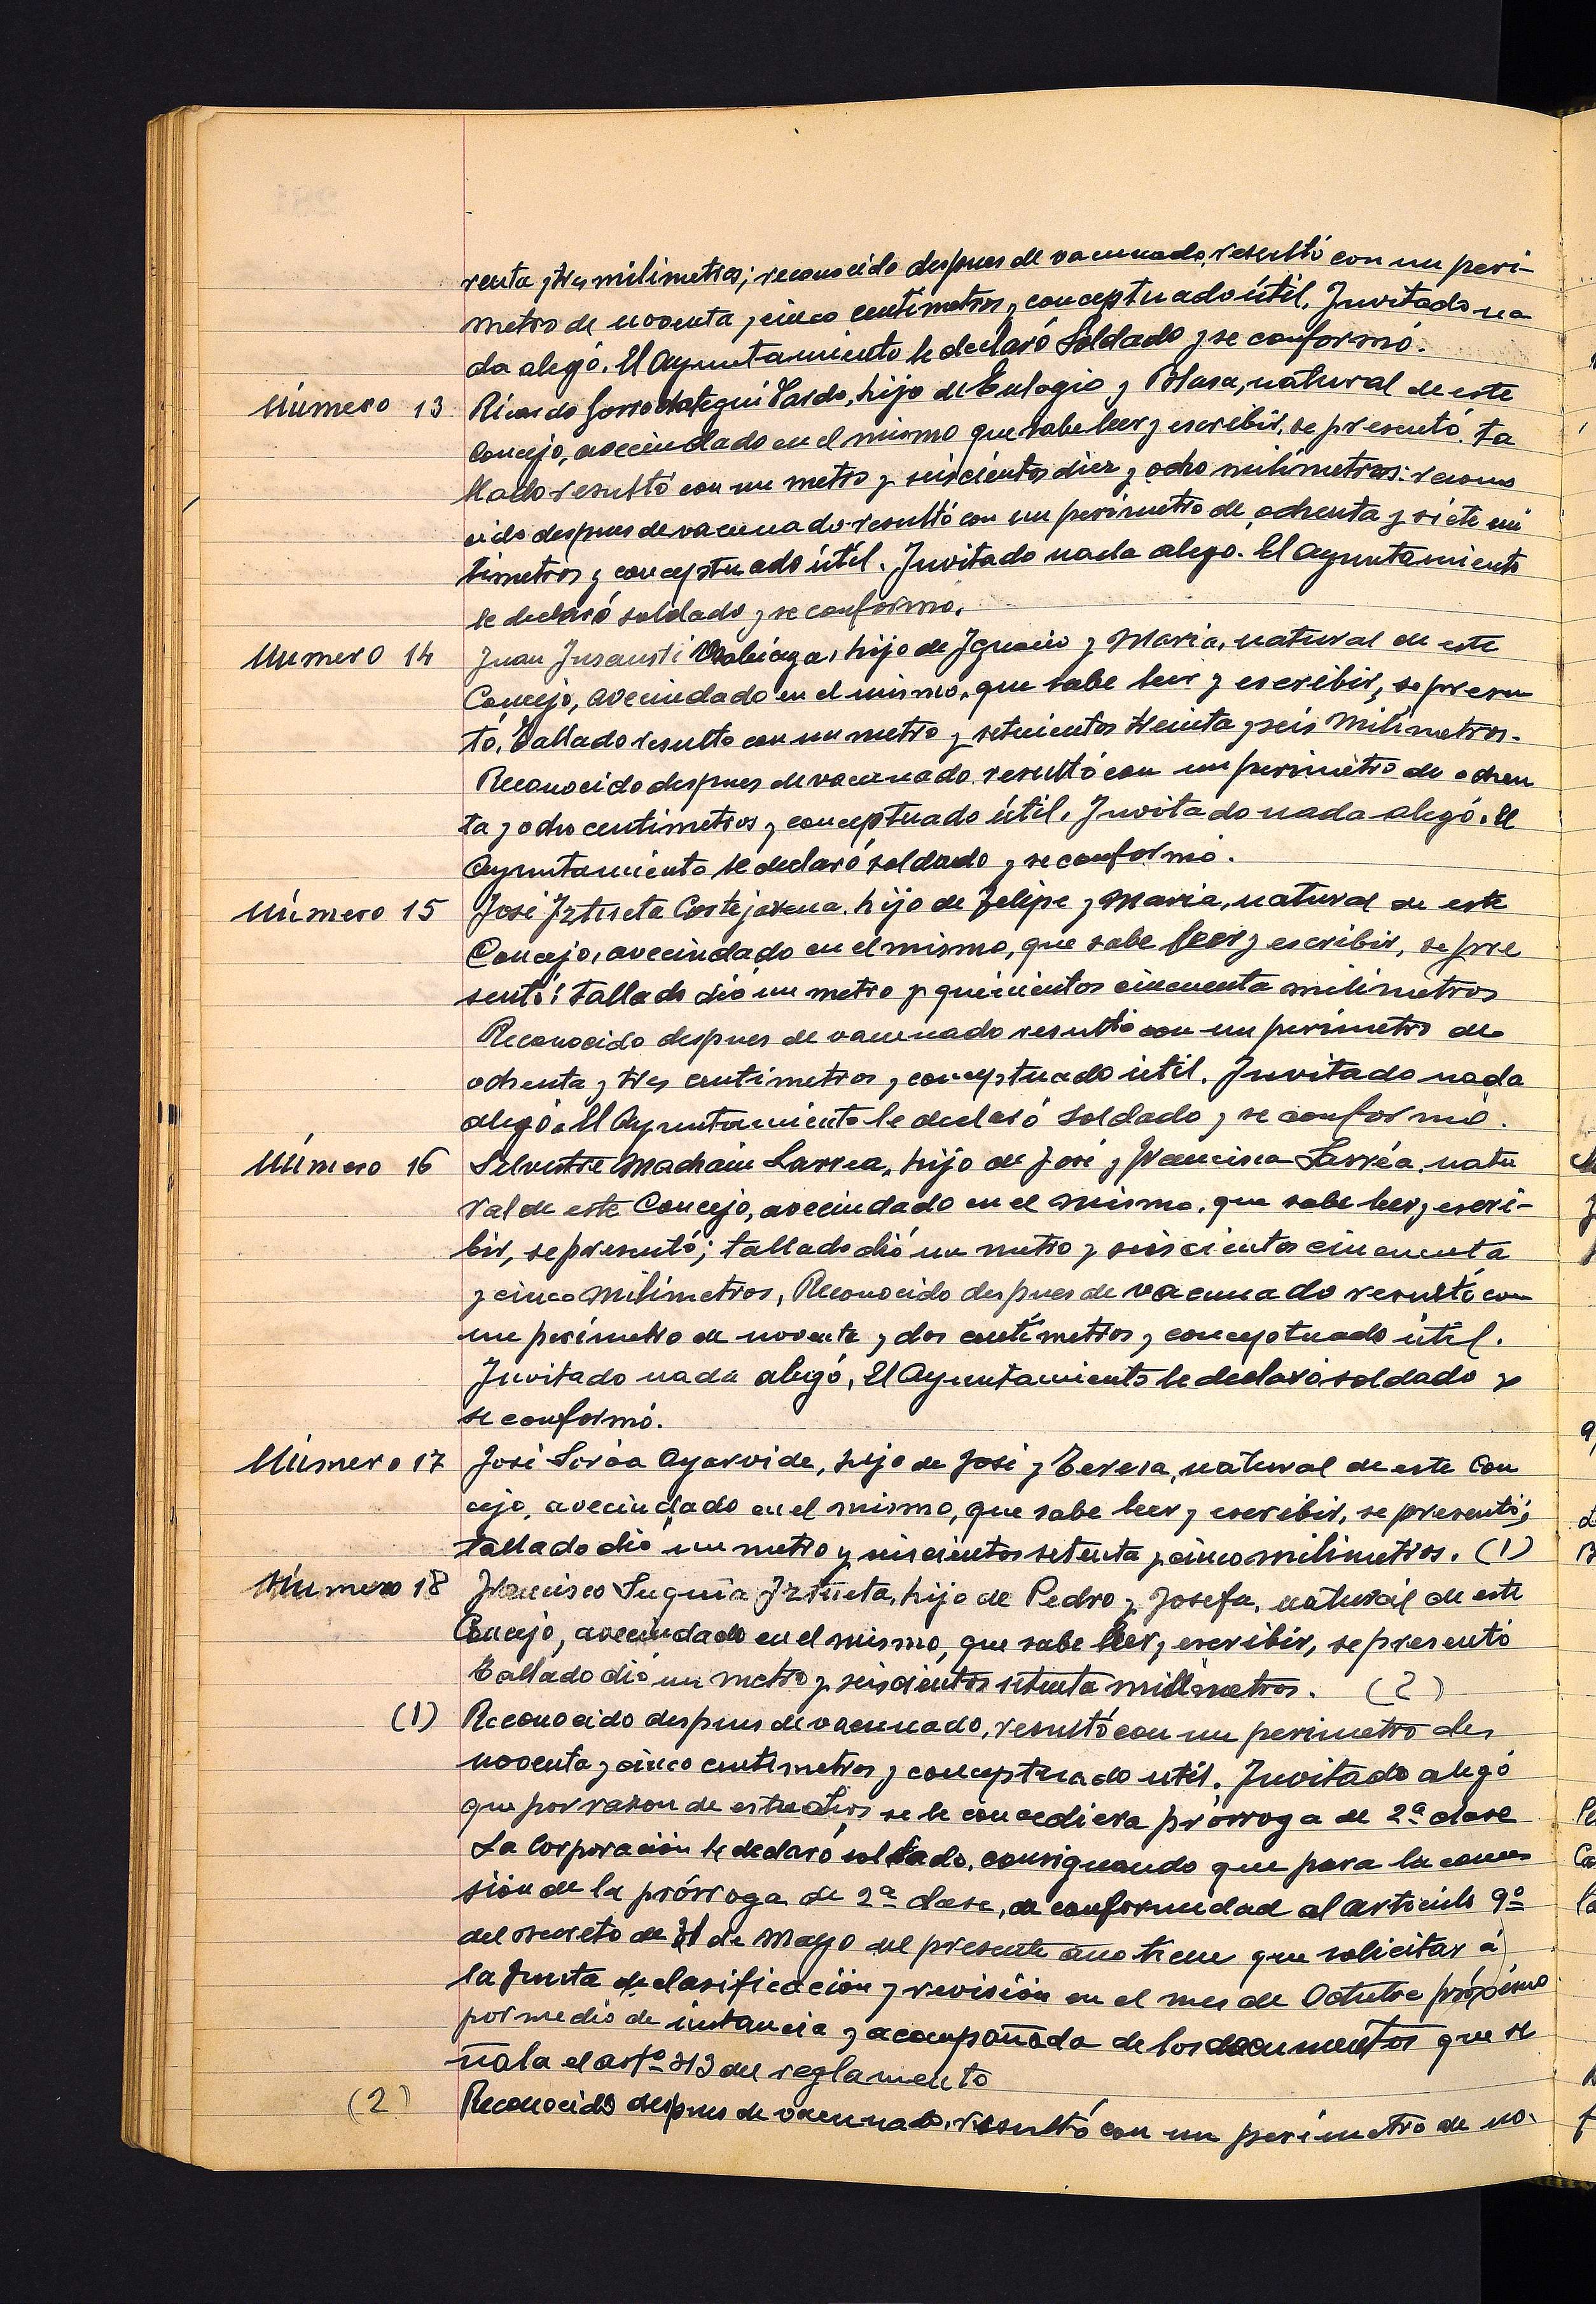 renta y tres milimetros; reconocido despues de vacunado, resultó con un peri-
metro de noventa y cinco centimetros y conceptuado útil. Invitado na
da alegó. El Ayuntamiento le declaró Soldado y se conformó.
Número 13 Ricardo Gorrochategui Pardo, hijo de Eulogio y Blasa, natural de este
Concejo, avecindado en el mismo que sabe leer y escribir, se presentó. ta
llado resultó con un metro y seiscientos diez y ocho milímetros: recono
cido despues de vacunado resultó con un perímetro de ochenta y siete cen
timetros y conceptuado útil. Invitado nada alego. El Ayuntamiento
le declaró soldado y se conformo.
Número 14 Juan Insausti hijo de Ignacio y Maria, natural de este
Concejo, avecindado en el mismo, que sabe leer y escribir, se presen
tó. Tallado resulto con un metro y setecientos treinta y seis milimetros.
Reconocido despues de vacunado. resultó con un perimetro de ochen
ta y ocho centimetros y conceptuado útil. Invitado nada alegó. El
Ayuntamiento le declaró soldado y se conformó.
Número 15 José Iztueta Costejarena. hijo de Felipe y Maria, natural de este
Concejo, avecindado en el mismo, que sabe leer y escribir, se pre
sentó: tallado dió un metro y quinientos cincuenta milimetros
Reconocido despues de vacunado resultó con un perímetro de
ochenta y tres centimetros y conceptuado útil. Invitado nada
alegó. El Ayuntamiento le declaró Soldado y se conformó.
Número 16 Silvestre Machain Larrea, hijo de José y Francisca Larréa, natu
ral de este Concejo, avecindado en el mismo, que sabe leer y escri-
bir, se presentó; tallado dió un metro y seiscientos cincuenta
y cinco milímetros, Reconocido despues de vacunado resultó con
un perímetro de noventa y dos centímetros y conceptuado útil.
Invitado nada alegó, El Ayuntamiento le declaró soldado y
se conformó.
Número 17 José Soróa Oyarvide, hijo de José y Teresa, natural de este Con
cejo, avecindado en el mismo, que sabe leer y escribir, se presentó;
tallado dió un metro y seiscientos setenta y cinco milimetros. (1)
Número 18 Francisco Suquia Iztueta, hijo de Pedro y Josefa, natural de este
Concejo, avecindado en el mismo, que sabe leer y escribir, se presentó
Tallado dió un metro y seiscientos setenta milímetros. (2)
(1) Reconocido despues de vacunado, resultó con un perimetro de
noventa y cinco centimetros y conceptuado util. Invitado alegó
que por razon de estudios se le concediera prórroga de 2ª clase
La Corporación le declaró soldado, consignando que para la conce
sión de la prórroga de 2ª clase, de conformidad al articulo 9º
del decreto de 31 de Mayo del presente año tiene que solicitar á
la Junta de clasificación y revisión en el mes de Octubre próximo
por medio de instancia y acompañada de los documentos que se
ñala el artº 313 del reglamento
(2) Reconocido despues de vacunado, resultó con un perímetro de no-